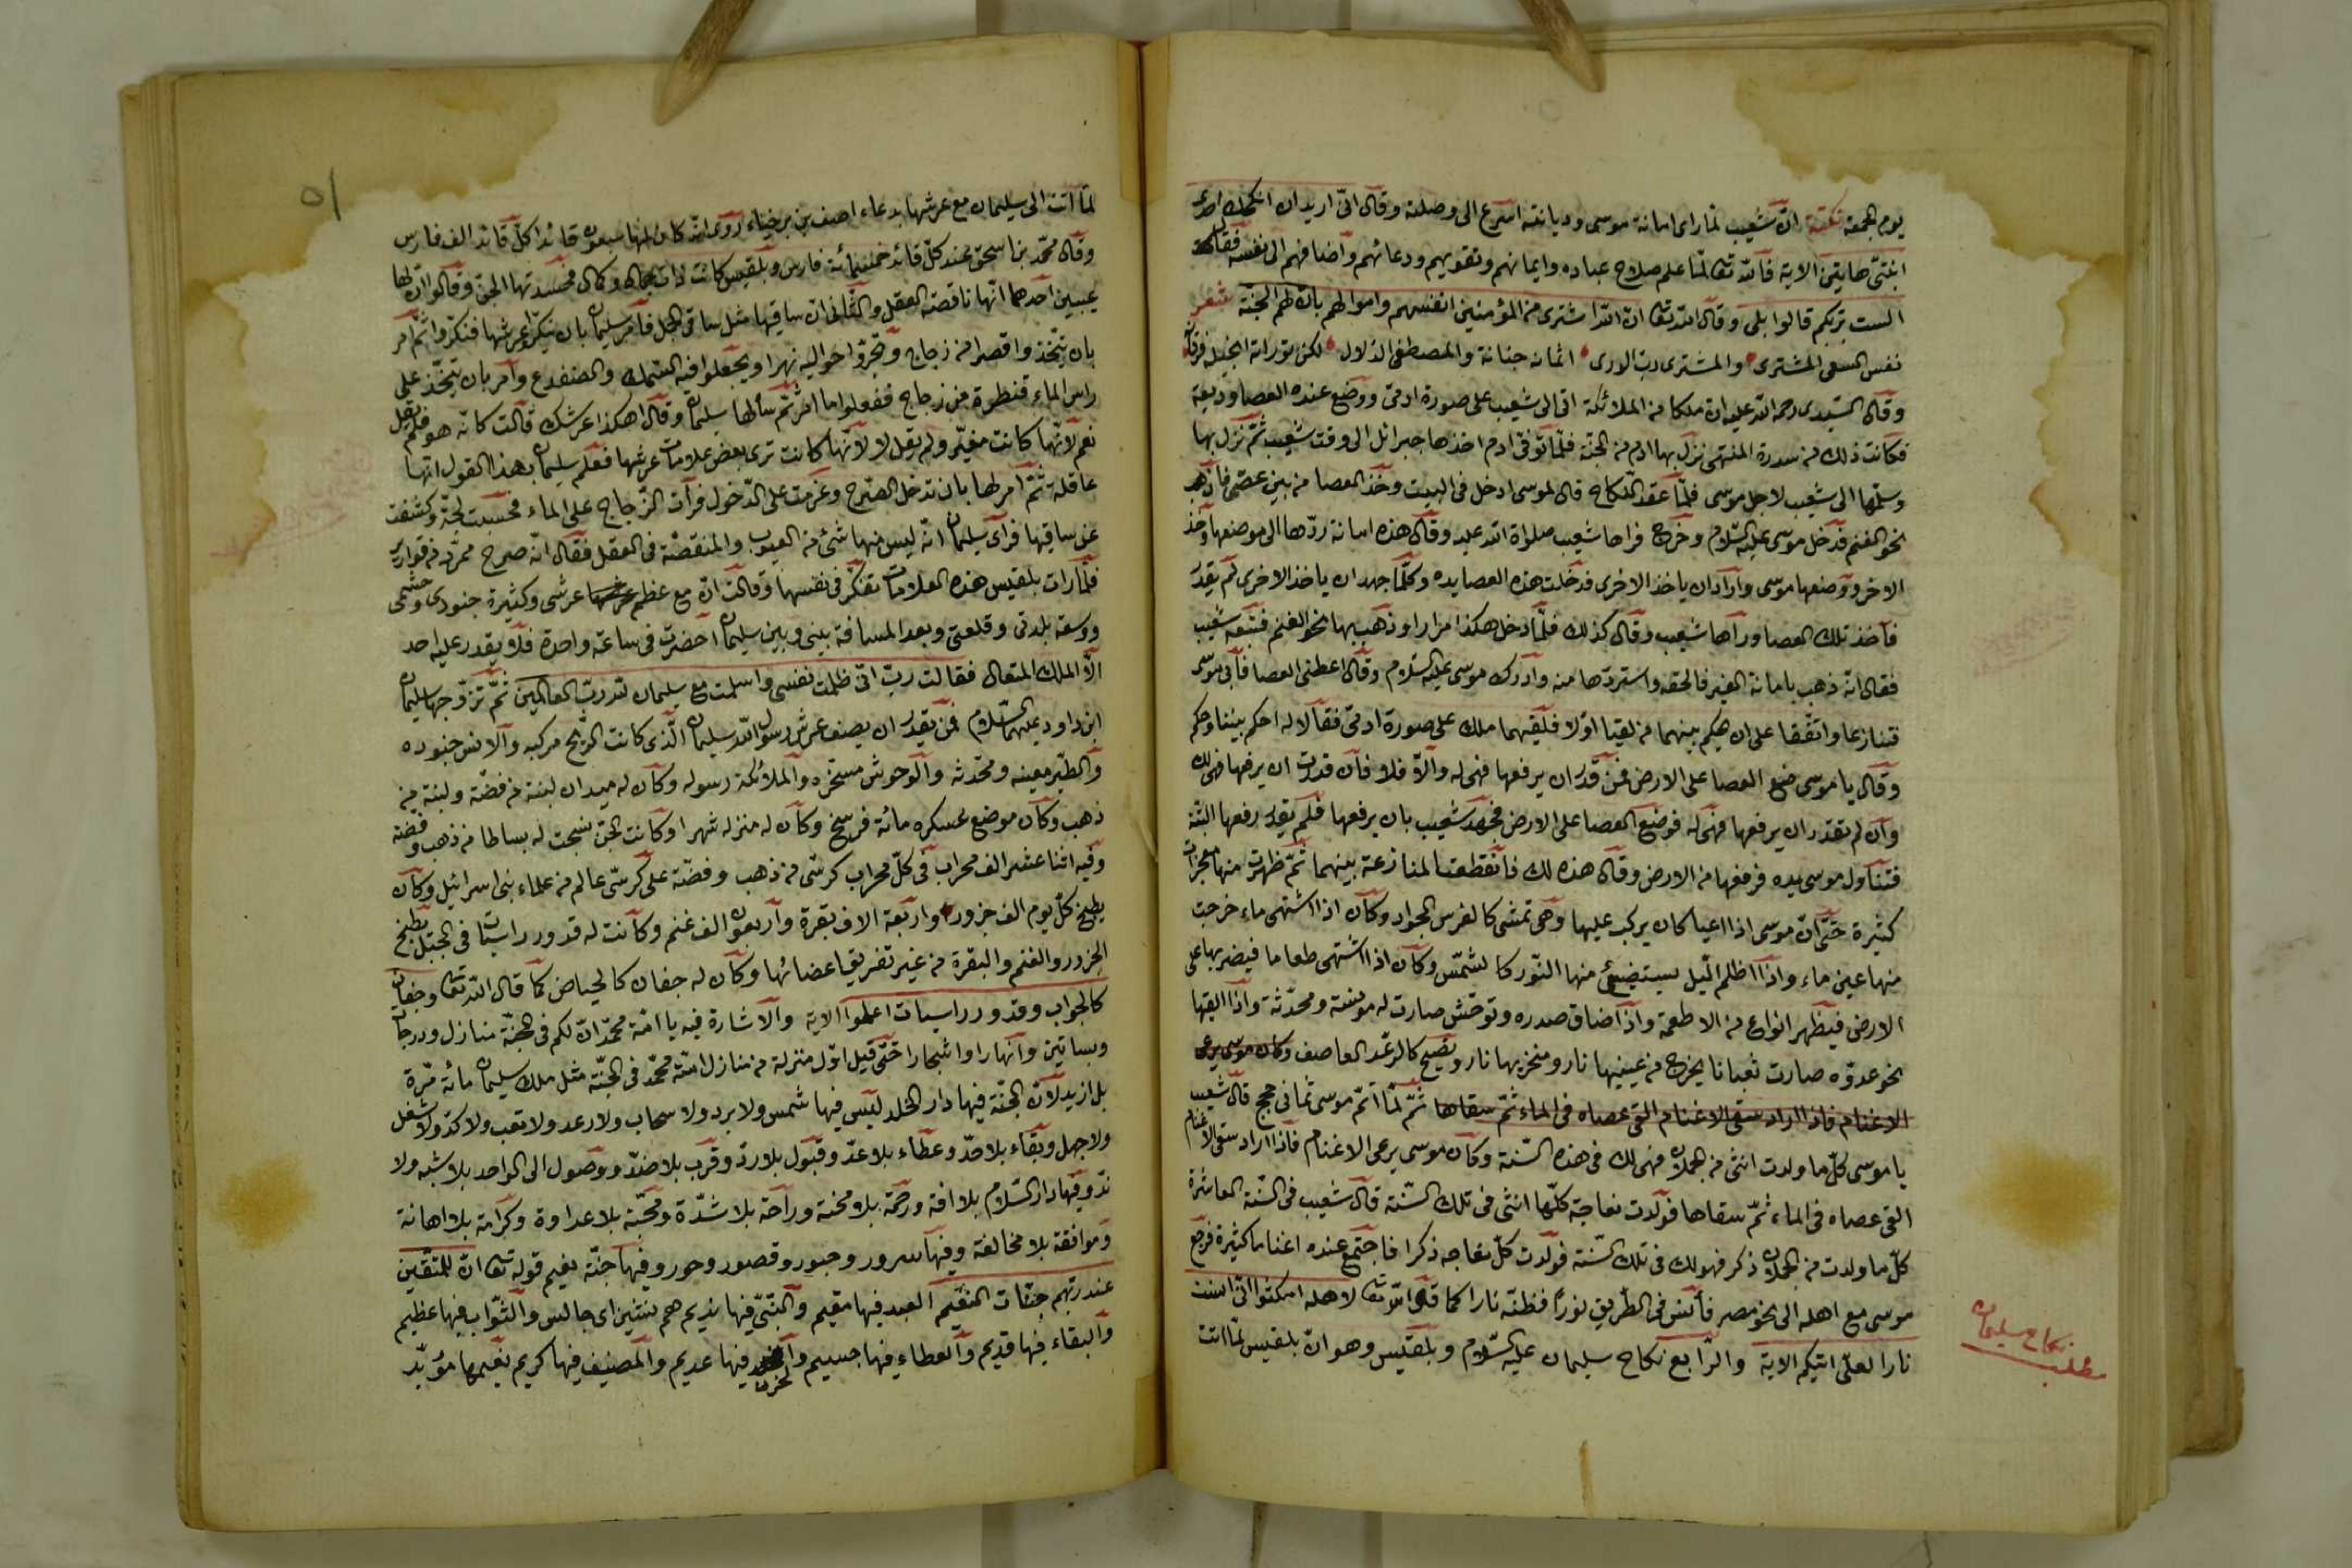 يوم الجمعة نكتة انّ شعيب لمّا راى امانة موسى وديانته اسرع الى وصلته وقال انّى اريد ان انكحك احدى
ابنتىّ هاتين الاية فالله تعا لمّا علم صلاح عباده وايمانهم وتقويهم ودعائهم واضافهم الى نفسه فقال
الست بربّكم قالوا بلى وقال الله تعا انّ الله اشترى من المؤمنين انفسهم واموالهم بانّ لهم الجنّة شعر
نفس المشترى والمشترى ربّ الورى اثمانه جنانة والمصطفى الدلال لكن توراته انجيله فرقانه
وقال السّيدى رحمه الله عليه انّ ملكا من الملائكة اتى الى شعيب على صورة ادمىّ ووضع عنده العصا وديعة
فكانت ذلك من سدرة المنتهى نزل بها ادم من الجنّة فلمّا توفى ادم اخذها جبرائل الى وقت شعيب ثمّ نزل بها
وسلّمها الى شعيب لاجل موسى فلمّا عقد النّكاح قال لموسى ادخل فى البيت وخذ العصا من بين عصىّ فاذهب
نحو الغنم فدخل موسى عليه السّلام وخرج فراها شعيب صلواة الله عليه وقال هذه امانة ردّها الى موضعها وخذ
الاخر ووضعها موسى واراد ان ياخذ الاخرى فدخلت هذه العصا يده وكلّما جهد ان ياخذ الاخرى لم يقدر
فاخذ تلك العصا ورآها شعيب وقال كذلك فلمّا دخل هكذا مرارا وذهب بها نحو الغنم فتبعه شعيب
فقال انّه ذهب بامانة الغير فالحقه واستردّها منه وادرك موسى عليه السّلام وقال اعطنى العصا فابى موسى
فتنازعا واتّفقا على ان يحكم بينهما من لقيا اوّلا فلقيهما ملك على صورة ادمىّ فقالا له احكم بيننا وحكم
وقال يا موسى ضع العصا على الارض فمن قدر ان يرفعها فهى له والّا فلا فان قدرت ان يرفعها فهى لك
وان لم تقدر ان يرفعها فهى له فوضع العصا على الارض فجهد شعيب بان يرفعها فلم يقدر رفعها البتّة
فتناول موسى بيده فرفعها من الارض وقال هذه لك فانقطعت المنازعة بينهما ثمّ ظهرت منها معجزات
كثيرة حتّى انّ موسى اذا اعيا كان يركب عليها وهى تمشى كالفرس الجواد وكان اذا اشتهى ماء خرجت
منها عين ماء واذا اظلم الّيل يستضيئ منها النّور كالشّمس وكان اذا اشتهى طعاما فيضربها على
الارض فيظهر انواع من الاطعمة واذا ضاق صدره وتوحّش صارت له مونسة ومحدّثة واذا القيها
نحو عدوّه صارت ثعبانا يخرج من عينيها نار ومنخريها نار ويصيح كالرعّد العاصف وكان موسى يرعى
الاغنام فاذا اراد سقى الاغنام القى عصاه فى الماء ثمّ سقاها ثمّ لمّا اتمّ موسى ثمانى حجج قال شعيب
يا موسى كلّ ما ولدت انثى من الحملان فهى لك فى هذه السّنة وكان موسى يرعى الاغنام فاذا اراد سقى الاغنام
القى عصاه فى الماء ثمّ سقاها فولدت نعاجه كلّها انثى فى تلك السّنة قال شعيب فى السّنة العاشرة
كلّ ما ولدت من الحملان ذكر فهو لك فى تلك السّنة فولدت كلّ نعاجه ذكرا فاجتمع عنده اغناما كثيرة فرجع
موسى مع اهله الى نحو مصر فآنس فى الطّريق نورًا فظنّه نارا كما قال الله تعا لاهله امكثوا انّى انست
نارا لعلّى اتيكم الاية والرّابع نكاح سليمان عليه السّلام وبلقيس وهو انّ بلقيس لمّا اتت
نكاح سليمان
مطلب
٥١
لمّا اتت الى سليمان مع عرشها بدعاء اصف بن برخياء روى انّه كان لها سبعون قائدا كلّ قائد الف فارس
وقال محمّد بن اسحق عند كلّ قائد خمسمائة فارس وبلقيس كانت ذات جمال وكمال فحسدتها الجنّ وقالوا انّ لها
عيبين احدهما انّها ناقصة العقل والثّانى انّ ساقيها مثل ساقى الجمل فامر سليمان بان ينكّروا عرشها فنكّروا ثمّ امر
بان يتّخذوا قصرا من زجاج وتجرّوا حواليه نهرا ويجعلوا فيه السّمك والضفدع وامر بان يتّخذ على
راس الماء قنطرة من زجاج ففعلوا ما امر ثمّ سألها سليمان وقال اهكذا عرشك قالت كانّه هو فلم يقل
نعم لانّها كانت مغيّر ولم يقل لا لانّها كانت ترى بعض علامات عرشها فعلم سليمان بهذا القول انّها
عاقلة ثمّ امر لها بان تدخل الصّرح وعزمت على الدّخول فرأت الزّجاج على الماء فحسبت لجّة وكشفت
عن ساقيها فرأى سليمان انّه ليس منها شئ من العيوب والمنقصة فى العقل فقال انّه صرح ممرّد من قوارير
فلمّا رات بلقيس هذه العلامات تفكّر فى نفسها وقالت انّ مع عظيم عرشى وكثيرة جنودى وحشمى
ووسعة بلدتى وقلعتى وبعد المسافة بينى وبين سليمان احضرت فى ساعة واحدة فلا يقدر عليه احد
الّا الملك المتعال فقالت ربّ انّى ظلمت نفسى واسلمت مع سليمان لله ربّ العالمين ثمّ تزوّجها سليمان
ابن داود عليهما السّلام فمن يقدر ان يصف عرش رسول الله سليمان الّذى كانت الرّيح مركبه والانس جنوده
والطّير معينه ومحدّثه والوحوش مسخّره والملائكة رسوله وكان له ميدان لبنة من فضّة ولبنة من
ذهب وكان موضع عسكره مائة فرسخ وكان له منزله شهرا وكانت الجنّ نسجت له بساطا من ذهب وفضّة
وفيه اثنا عشر الف محراب فى كلّ محراب كرسّى من ذهب وفضّة على كرسّى عالم من علماء بنى اسرائيل وكان
يطبخ كلّ يوم الف جزور واربعة الاف بقرة واربعون الف غنم وكانت له قدور راسيات فى الجبل يطبخ
الجزور والغنم والبقرة من غير تفريق اعضائها وكان له جفان كالحياض كما قال الله تعا وجفان
كالجواب وقدور راسيات اعملوا الاية والاشارة فيه يا امّة محمّد انّ لكم فى الجنّة منازل ودرجات
وبساتين وانهارا واشجارا حتّى قيل اوّل منزلة من منازل امّة محمّد فى الجنّة مثل ملك سليمان مائة مرّة
بل ازيد لانّ الجنّة فيها دار الخلد ليس فيها شمس ولا برد ولا سحاب ولا رعد ولا تعب ولا كدّ ولا شغل
ولا جهل وبقاء بلا حدّ وعطاء بلا عدّ وقبول بلا ردّ وقرب بلا ضدّ ووصول الى الواحد بلا شبه ولا
ندّ وفيها دار السّلام بلا افة ورحمة بلا محنة وراحة بلا شدّة ومحبّة بلا عداوة وكرامة بلا اهانة
وموافقة بلا مخالفة وفيها سرور وحبور وقصور وحور وفيها جنّة نعيم قوله تعا انّ للمتّقين
عند ربّهم جنّات النّعيم العبد فيها مقيم والنّبىّ فيها نديم هم اى جالس والثّواب فيها عظيم
والبقاء فيها قديم والعطاء فيها جسيم والحزن فيها عديم والمضيف فيها كريم نعيمها مؤبّد